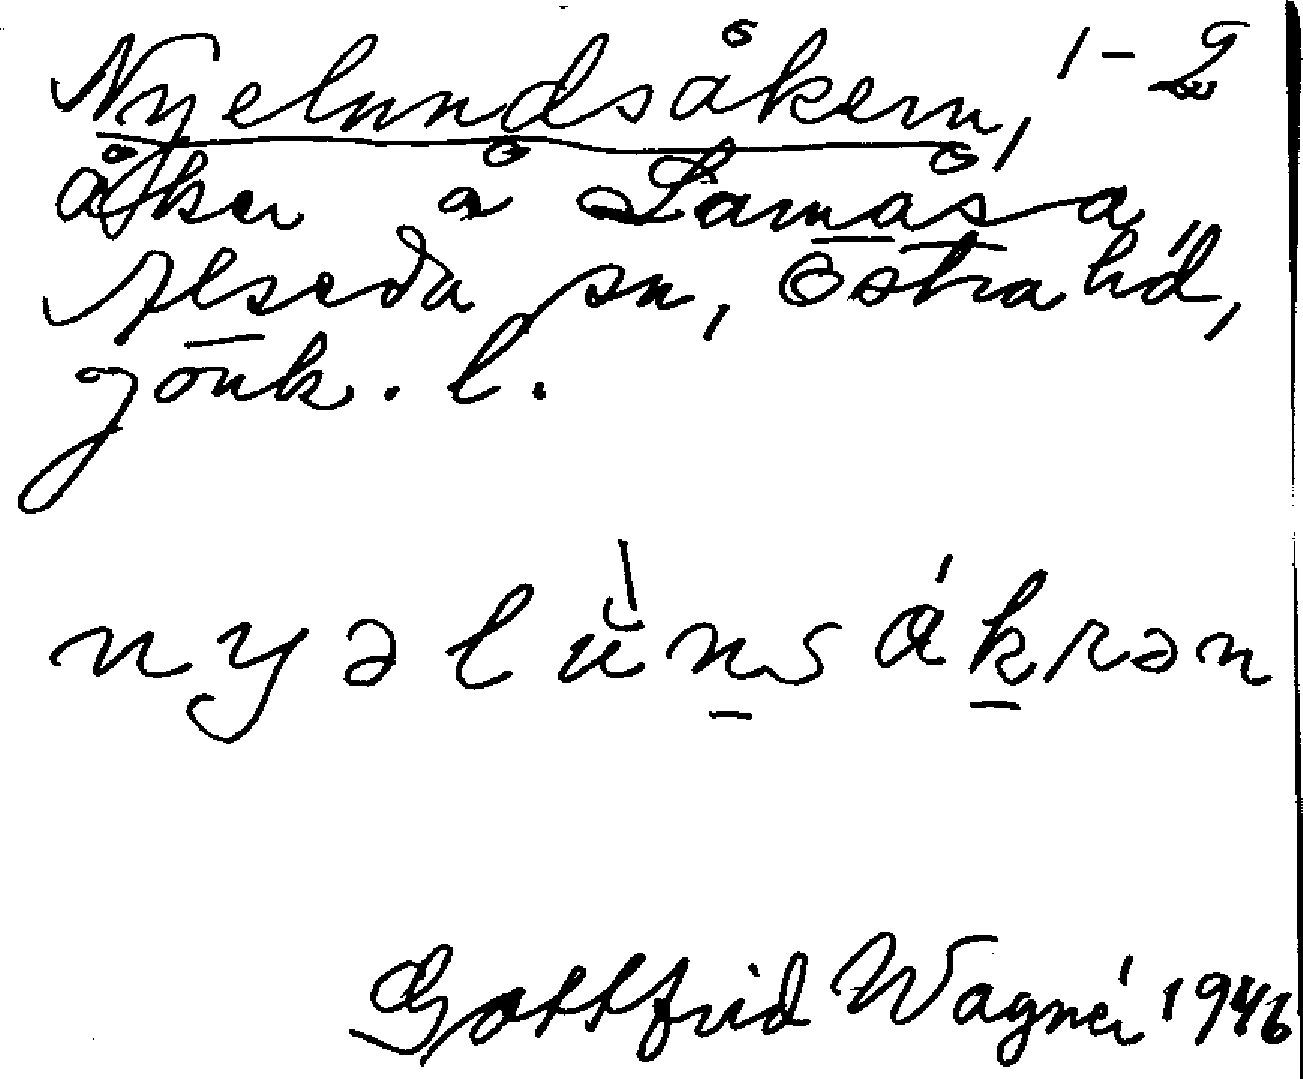 Nyelundsåkern, 1-2
åker å Lamåsa
Alseda sn, Östra hd,
Jönk. l.
nyəlùnsákrən
Gottfrid Wagnér 1946